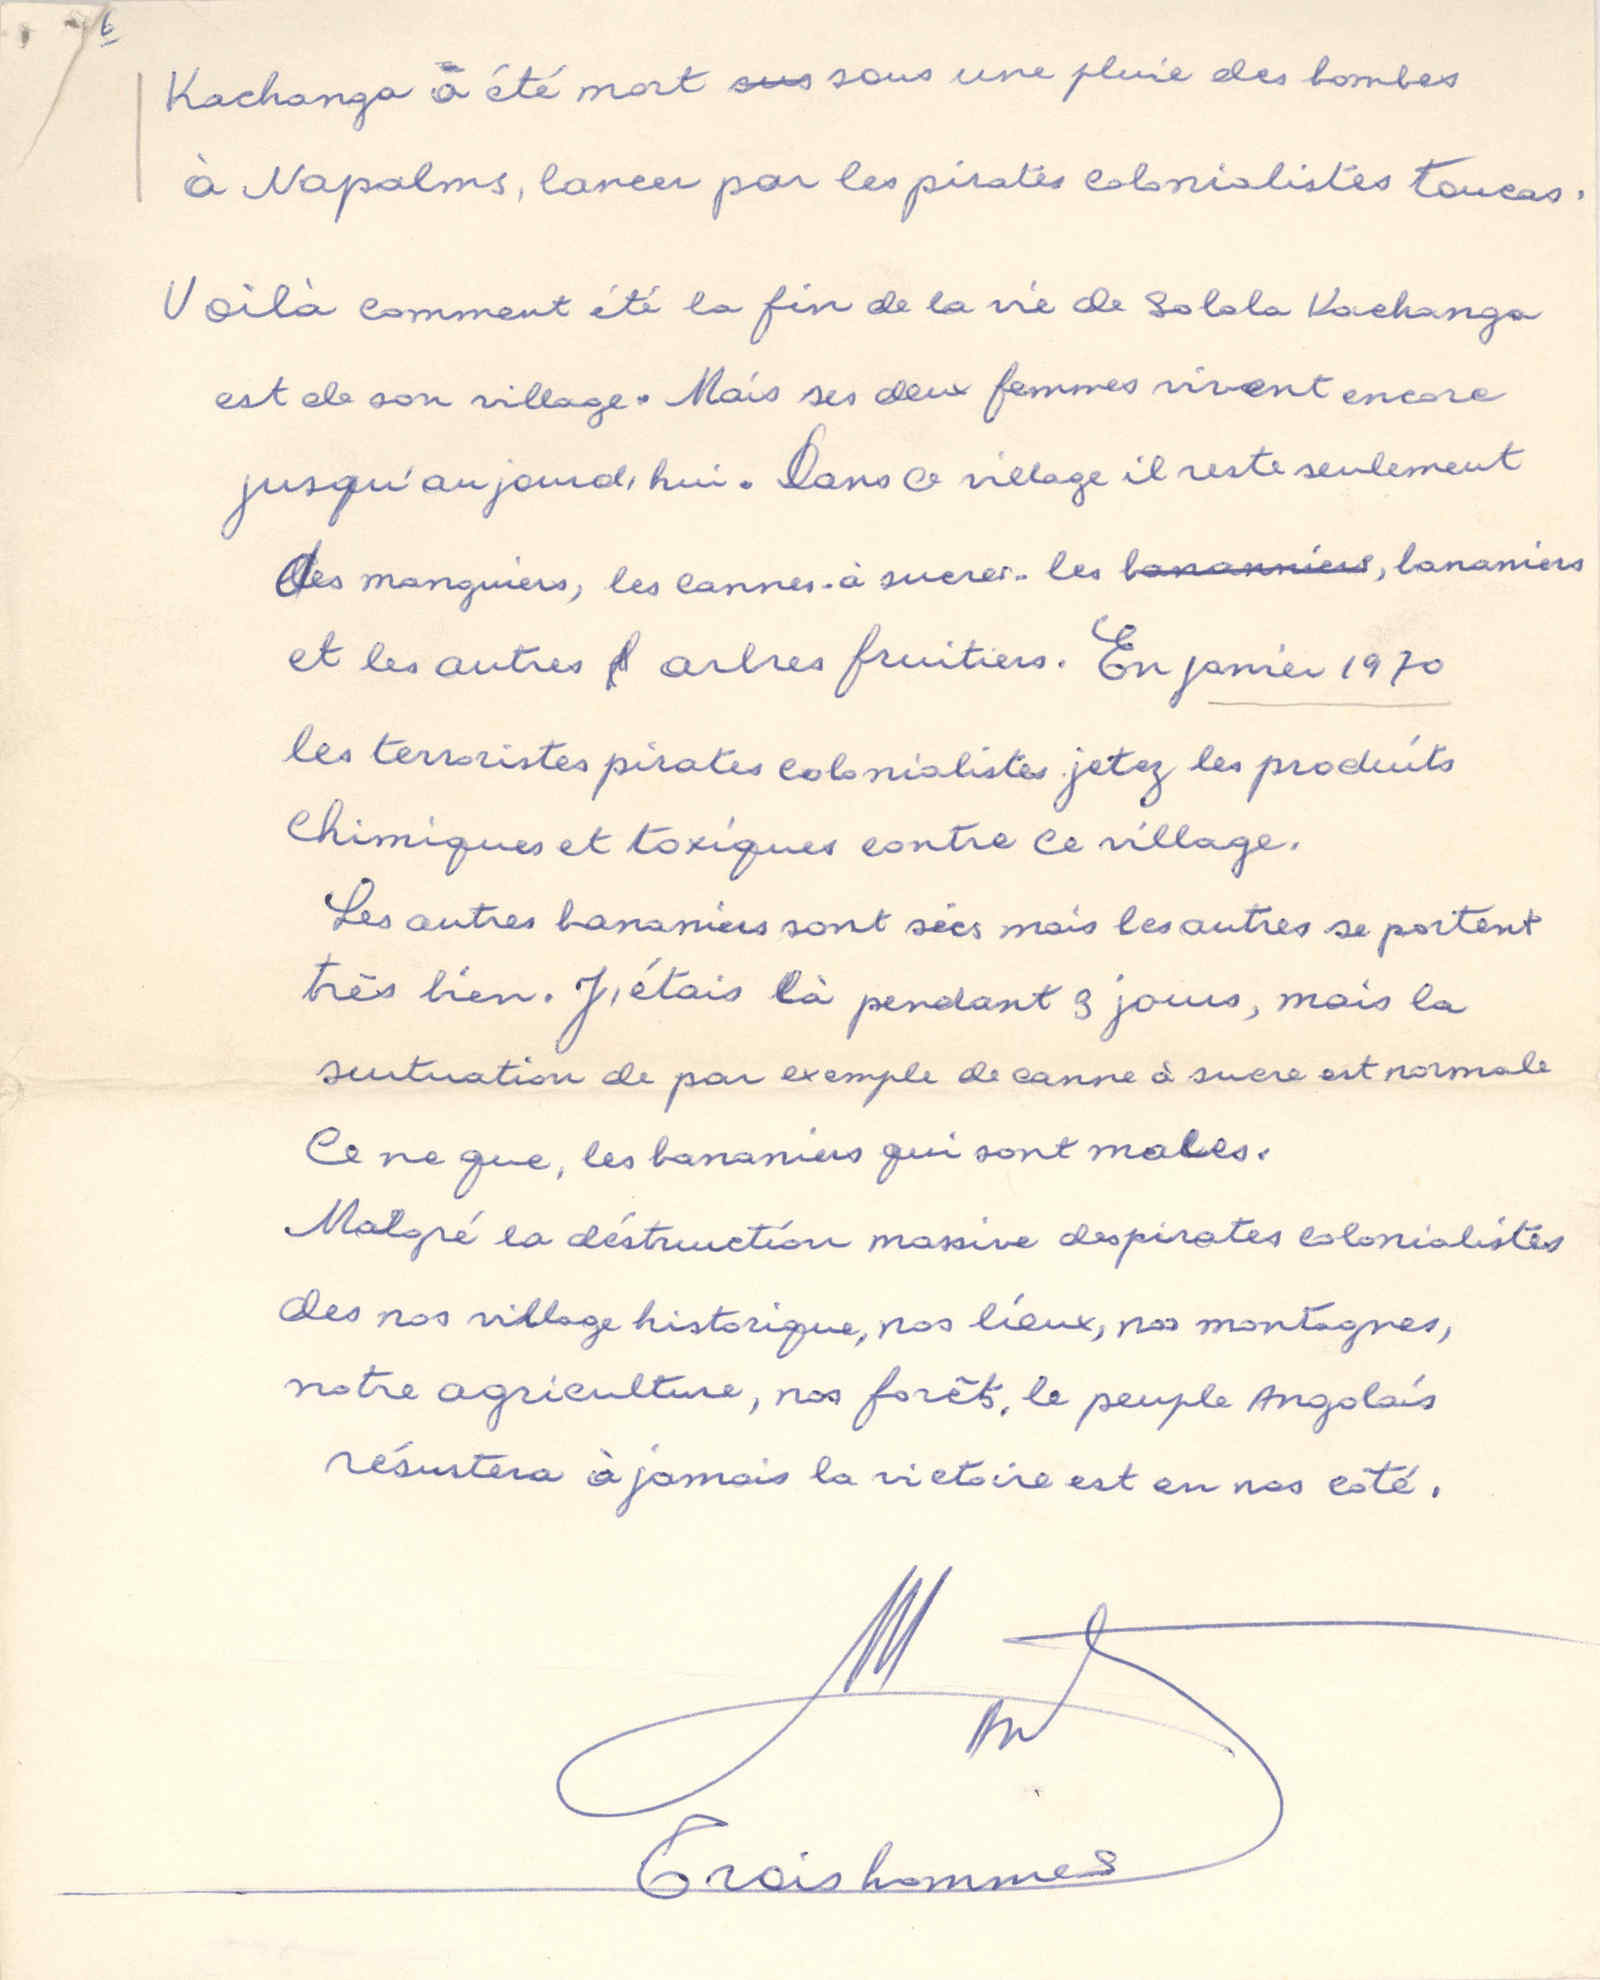 6
Kachanga a été mort sus sous une pluie des bombes
à Napalms, lancer par les pirates colonialistes toucas.
Voilà comment été la fin de la vie de Solola Kachanga
est de son village. Mais ses deux femmes vivent encore
jusqu'aujourd'hui. Dans ce village il reste seulement
des manguiers, les cannes-à sucrer- les bananniers, bananiers
et les autres arbres fruitiers. En janvier 1970
les terroristes pirates colonialistes jetez les produits
chimiques et toxiques contre ce village.
Les autres bananiers sont sécs mais les autres se portent
très bien. J'étais là pendant 3 jours, mais la
sutuation de par exemple de canne à sucre est normale
Ce ne que, les bananiers qui sont males.
Malgré la déstruction massive des pirates colonialistes
des nos village historique, nos lieux, nos montagnes,
notre agriculture, nos forêts, le peuple Angolais
résustera à jamais la victoire est en nos coté.
Troishommes